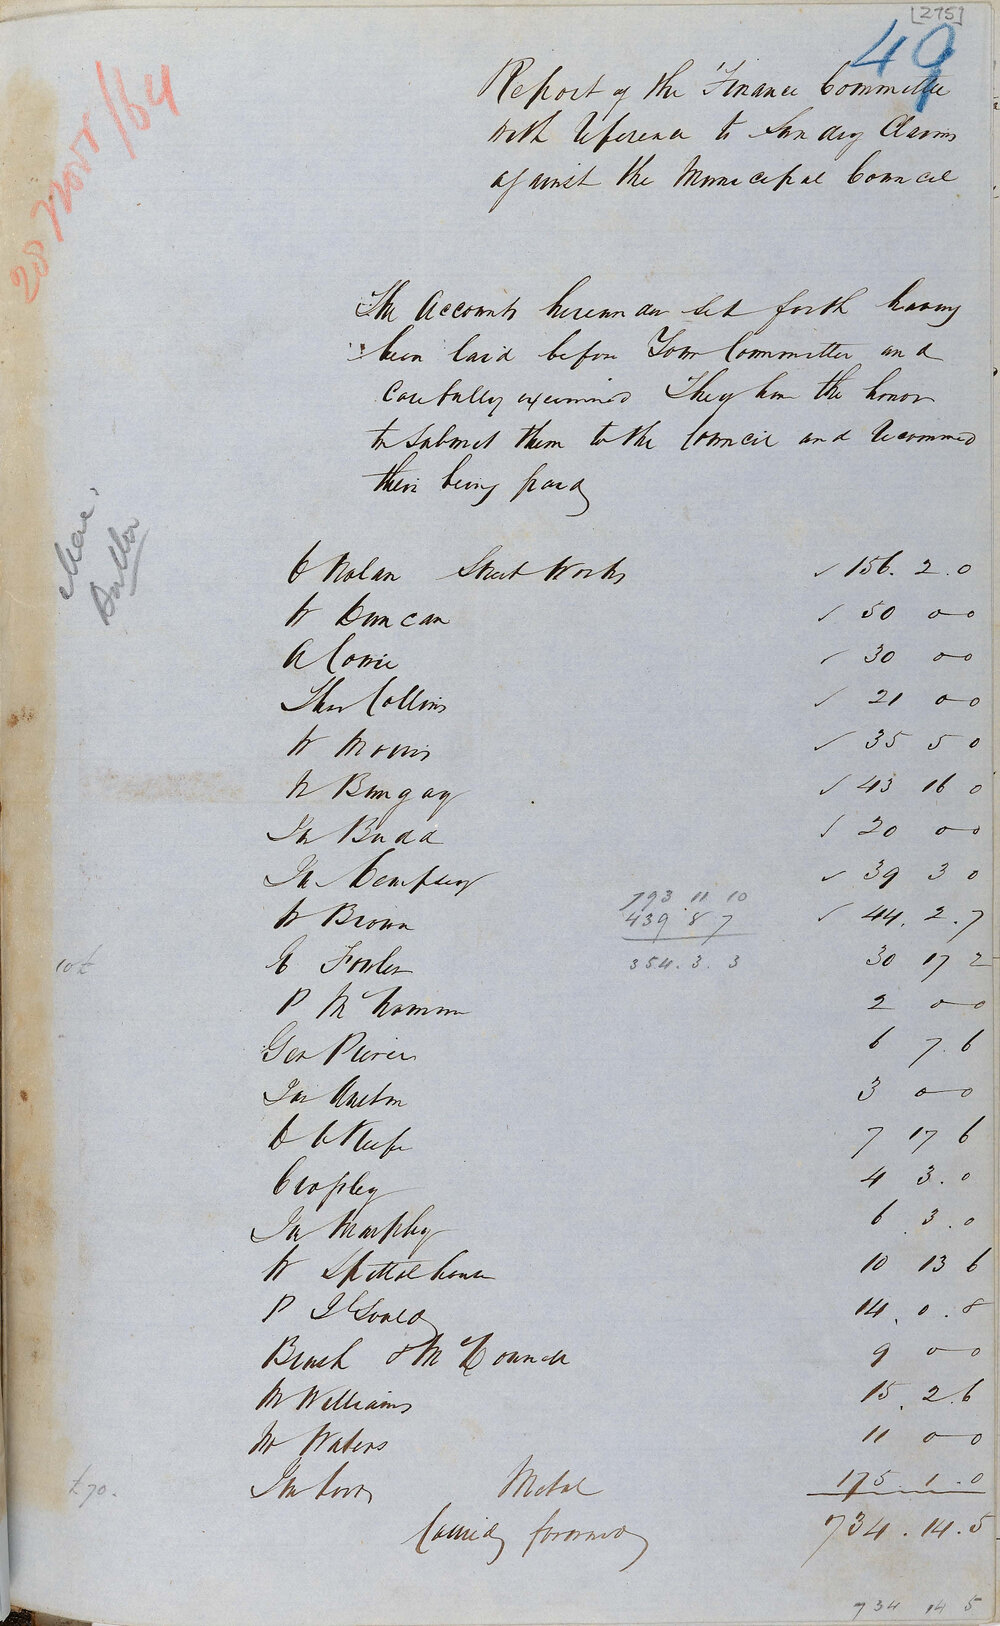 [275]
49
28 Novr/64
Report of the Finance Committee
with reference to Sundry Claims
against the Municipal Council
The Accounts hereunder set forth having
been laid before Your Committee and
Carefully examined They have the honor
to Submit them to the Council and recommend
their being paid
D Nolan Street Works ✓ 156. 2. 0
W Duncan ✓ 50 0 0
A Cowie ✓ 30 0 0
Thos Collins ✓ 21 0 0
W Morris ✓ 35 5 0
W Bungay ✓ 43 16 0
Jn Budd ✓ 20 0 0
Jn Dempsey ✓ 39 3 0
793 11 10
W Brown ✓ 44. 2. 7
439 8 7
10£ E Fowler 30 17 2
354. 3. 3
P McNamara 2 0 0
Geo Pierce 6 7. 6
Jas Aueton 3 0 0
D O'Keefe 7 17 6
Cropley 4 3. 0
Jn Murphy 6. 3. 0
W Spittlehouse 10 13 6
P 14. 0. 8
Brush & McDonnell 9 0 0
W Williams 15. 2. 6
W Waters 11 0 0
£70. Jn Metal 175. 1. 0
Carried forward 734. 14. 5
734 14 5